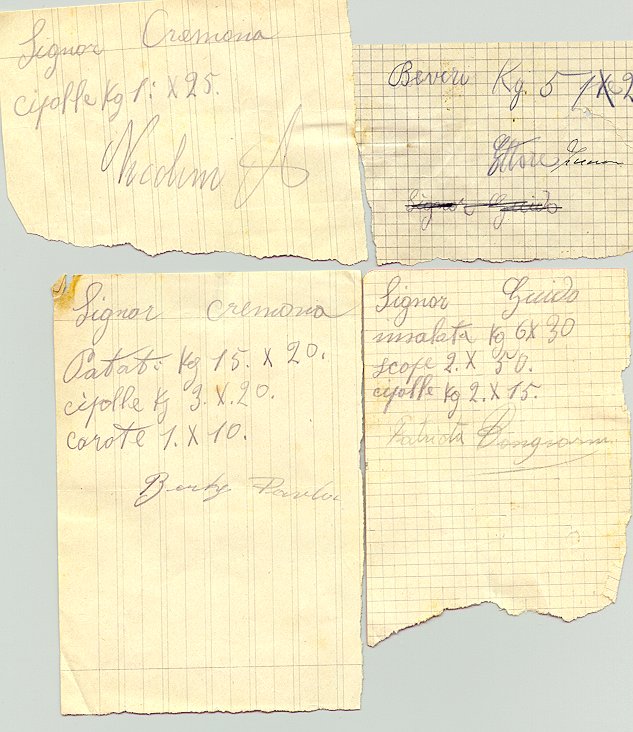 Signor Cremona
cipolle Kg 1: X 25.
Nicolini A
Beveri Kg. 5 1 X 2
Ettore
Signor Guido
Signor cremona
Patate Kg 15. X 20.
cipolle Kg 3. X. 20.
carote 1. X 10.
Signor Guido
insalata Kg 6 X 30
scope 2. X 50.
cipolle Kg 2. X 15.